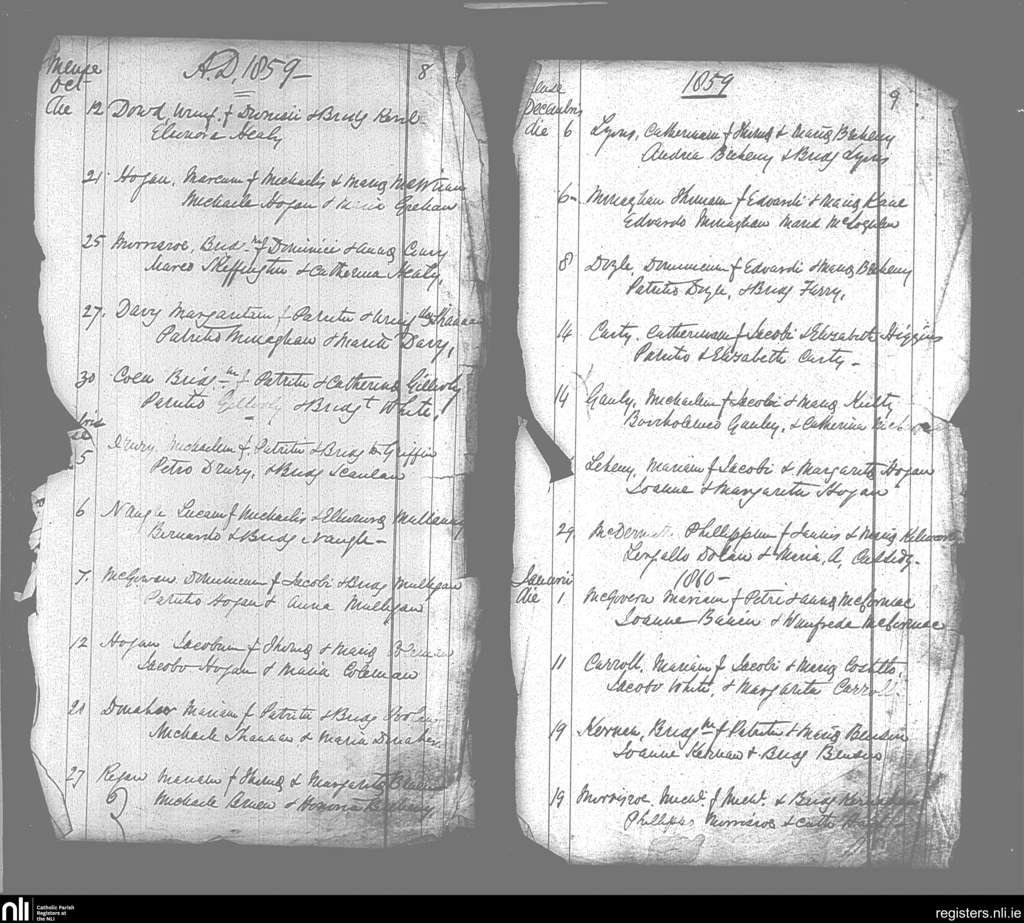 Mense
Oct
A.D. 1859 —
8
Die 12 Dowd, Winif. f Dionisii & Bridg
Elenora Healy
21 Hogan, Marcum f Michaelis & Maria
Michaele Hogan & Maria Grehan
25 Morrisroe, Brid-m f Dominici & Anna
Marco Skeffington & Catherina Healy,
27. Davy Margaritam f Patritii & Winif
Patritio Monaghan & Maria Davy,
30 Coen Bridg-m f Patritii & Catherina Gillooly
Patritio Gillooly & Bridgt White,
5 Drury Michaelem f. Patritii & Bridg Griffin
Petro Drury, & Bridg Scanlan
6 Naugh Lucam f Michaelis & Mullany
Bernardo & Bridg Naugh —
7. McGowan Dominicum f Jacobi & Bridg Mulligan
Patritio Hogan & Anna Mulligan
12 Hogan Jacobum f Thoma & Maria
Jacobo Hogan & Maria Coleman
20 Donaher Mariam f Patritii & Bridg
Michaele & Maria Donaher
27 Regan Mariam f Thoma & Margarita
Michaele & Honoria
1859
9
Decembris
die 6 Lyons, Catherinam f Thoma & Maria Beeheny
Andrea Beeheny & Bridg Lyons
6 — Monaghan Thomam f Edvardi & Maria Kane
Edvardo Monaghan Maria McLoghlen
8 Doyle, Dominicum f Edvardi & Maria Beeheny
Patritio Doyle, & Bridg Furry,
14 Curty, Catherinam f Jacobi & Elizabeth Higgins
Patritio & Elizabeth Curty —
14 Gauly, Michaelem f Jacobi & Maria Kielty
Bartholomeo Gauly, & Catherina
Leheny, Mariam f Jacobi & Margarita Hogan
Joanne & Margarita Hogan
29 McDermott Phillippum f & Maria
Dolan & Maria, A, Cassidy —
Januarii
1860 —
Die 1 McGovern Mariam f Petri & Anna McCormac
Joanne & Winifreda McCormac
11 Carroll, Mariam f Jacobi & Maria Costello,
Jacobo White, & Margarita Carroll
19 Kernan, Bridgm f Patritii & Maria
Joanne Kernan & Bridg
19 Morrisroe. Michl. f Michl. & Bridg
Phillipus Morrisroe & Cath
nli
Catholic Parish
Registers at
the NLI
registers.nli.ie